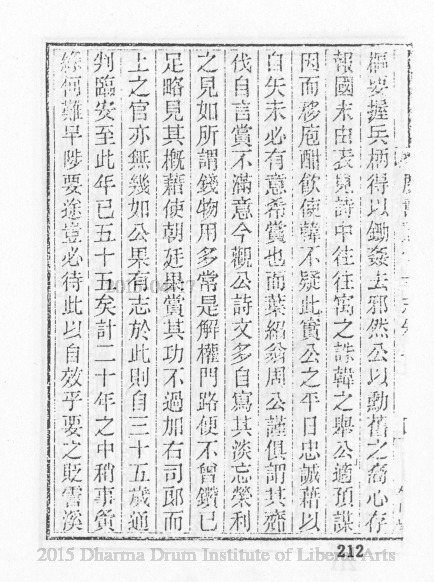 樞要握兵柄得以鋤姦去邪然公以勳舊之裔心存
報國末由表見詩中往往寓之誅韓之舉公適預謀
因而移庖酣飲使韓不疑此實公之平日忠誠藉以
自矢未必有意希賞也而葉紹翁周公謹俱謂其
伐自言賞不滿意今觀公詩文多自寫其淡忘榮利
之見如所謂錢物用多常是解權門路使不曾鑽已
足略見其槪藉使朝廷果賞其功不過加右司郎而
上之官亦無幾如公果有志於此則自三十五歲通
判臨安至此年已五十五矣計二十年之中稍事夤
緣何難早陟要途豈必待此以自效乎要之貶霅溪
212
2015 Dharma Drum Institute of Liberal Arts